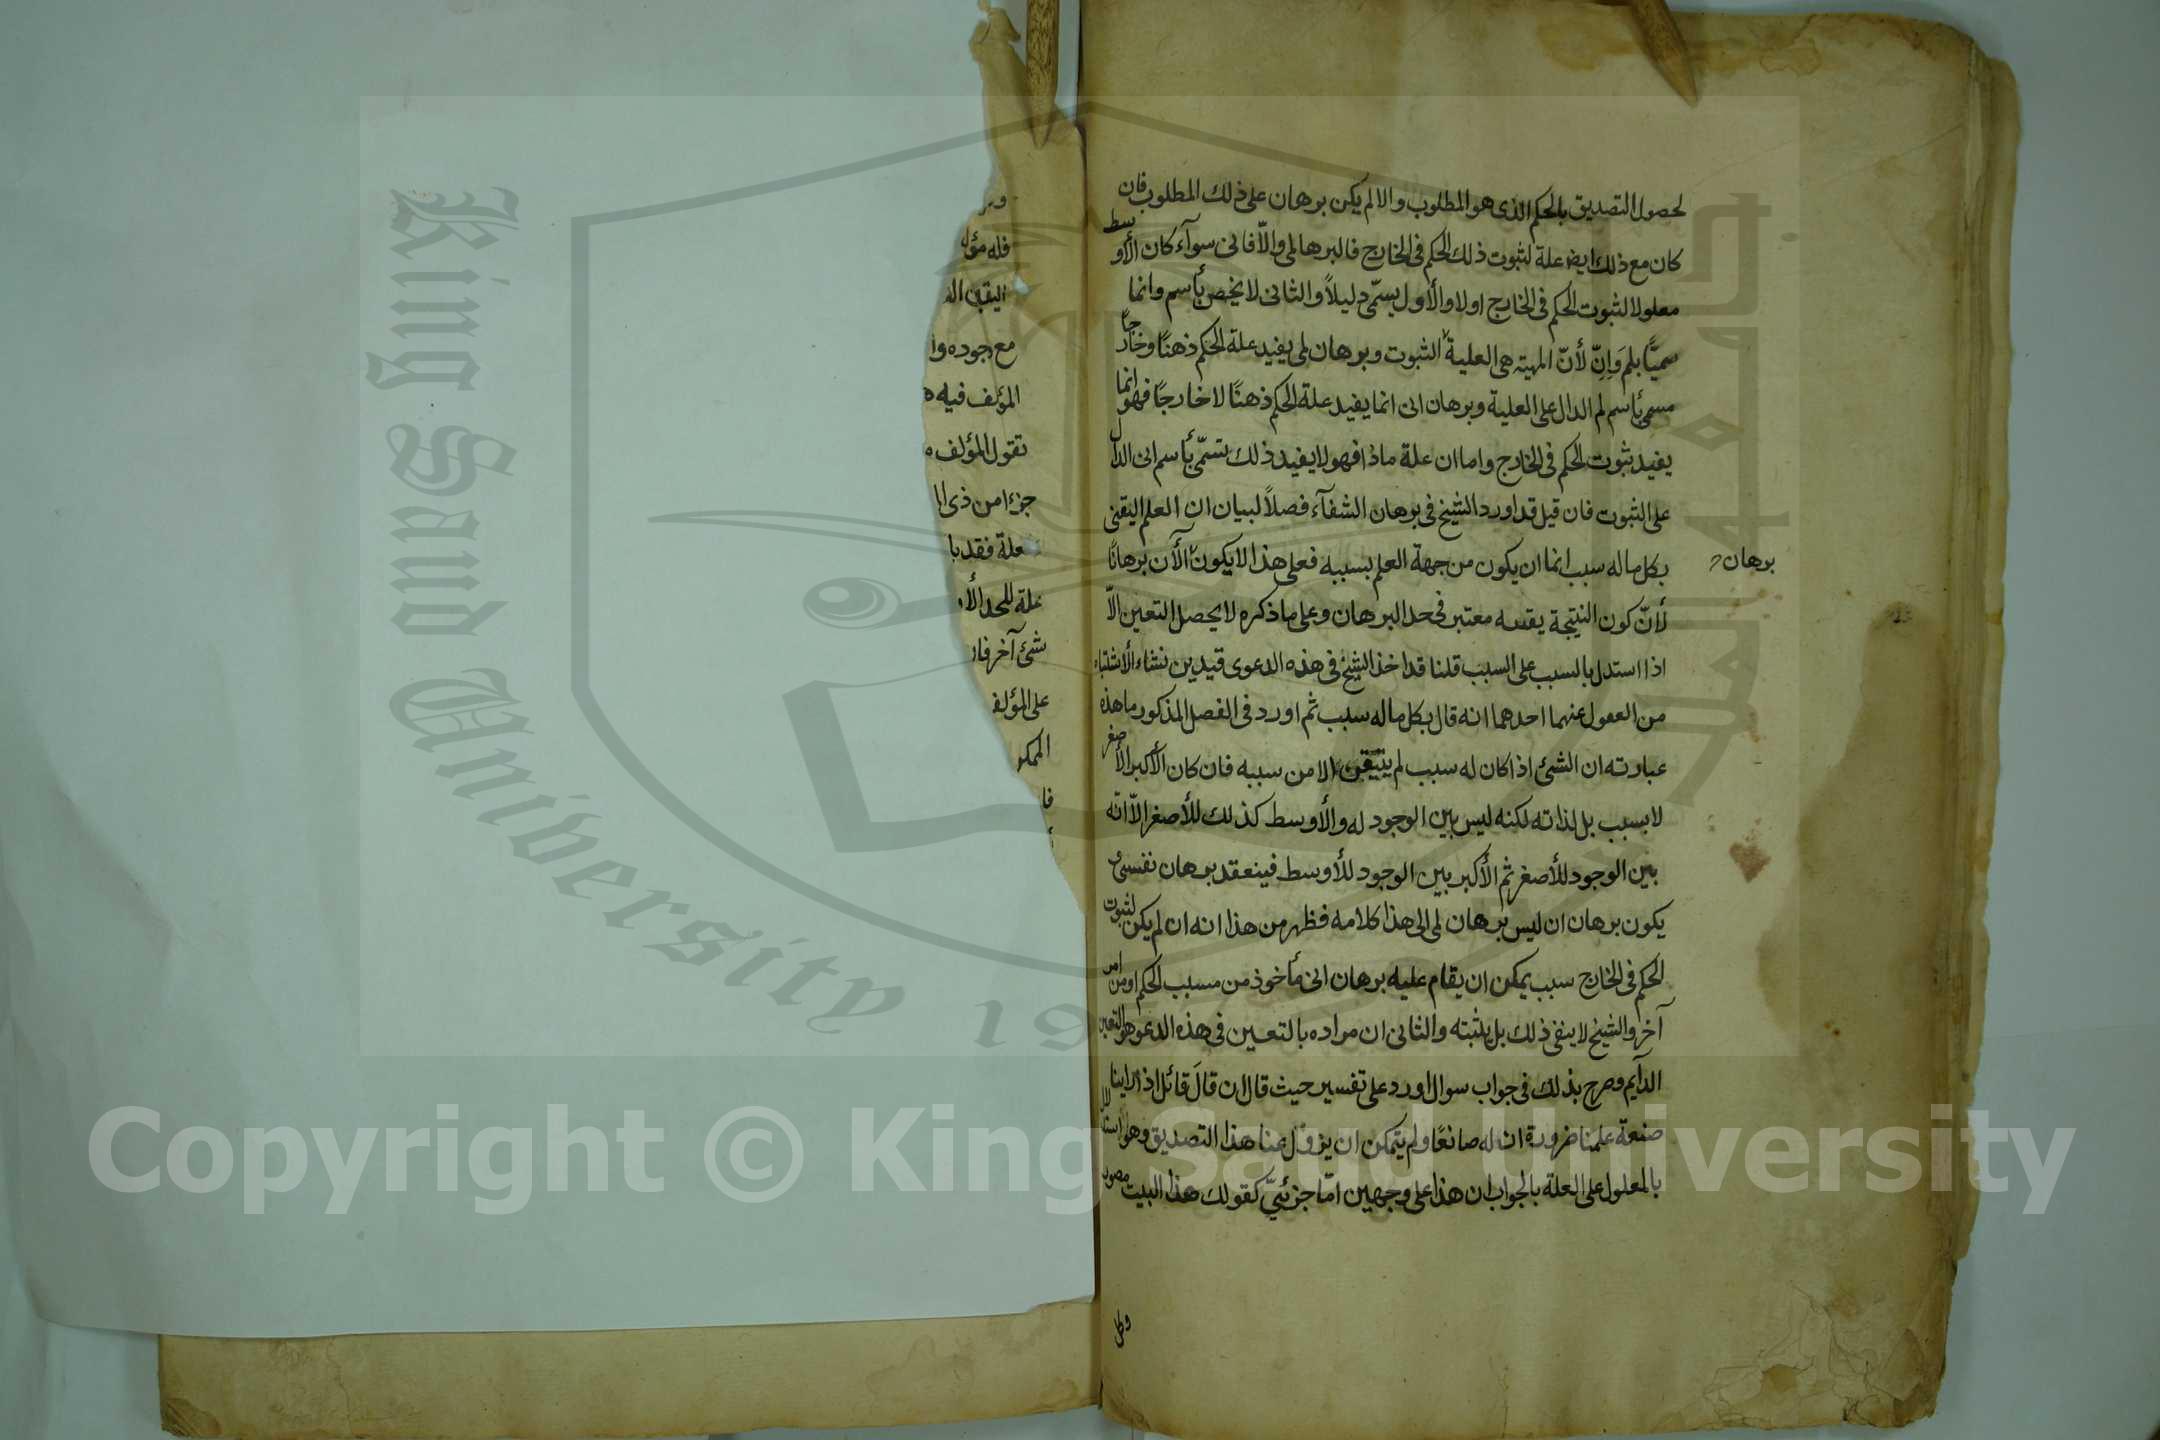 لحصول التصديق بالحكم الذى هو المطلوب والا لم يكن برهان على ذلك المطلوب فان
كان مع ذلك ايضا علة لثبوت ذلك الحكم فى الخارج فالبرهان لمى والاّ فانى سوآء كان الأوسط
معلولا لثبوت الحكم فى الخارج اولا والأول يسمّى دليلاً والثانى لا يخص بأسم وانما
سميّا بلم وَاِنّ لأنّ اللميته هى العلية الثبوت وبرهان لمى يفيد علة الحكم ذهنًا وخارجًا
مسمى بأسم لم الدال على العلية وبرهان انى انما يفيد علة الحكم ذهنًا لا خارجًا فهو انما
يفيد ثبوت الحكم فى الخارج واما ان علة ماذا فهو لا يفيد ذلك تسمّى بأسم انى الدال
على الثبوت فان قيل قد اورد الشيخ فى برهان الشفآء فصلاً لبيان ان العلم اليقنى
بكل ماله سبب انما ان يكون من جهة العلم بسببه فعلى هذا لا يكون الأن برهانًا
برهان
لأنّ كون النتيجة يقينيه معتبر فى حد البرهان وعلى ما ذكره لا يحصل التعين الاّ
اذا استدل بالسبب على السبب قلنا قد اخذ الشيخ فى هذه الدعوى قيدين نشاء الأشتباه
من الغفول عنهما احدهما انه قال بكل ماله سبب ثم اورد فى الفصل المذكور ما هذه
عبارته ان الشئ اذا كان له سبب لم يتيقن الا من سببه فان كان الأكبر الأصغر
لا بسبب بل لذاته لكنه ليس بين الوجود له والأوسط كذلك للأصغر الاّ انّه
بين الوجود للأصغر ثم الأكبر بين الوجود للأوسط فينعقد برهان نفسى و
يكون برهان ان ليس برهان لمى الى هذا كلامه فظهر من هذا انه ان لم يكن لثبوت
الحكم فى الخارج سبب يمكن ان يقام عليه برهان انى مأخوذ من مسبب الحكم او من امر
آخر والشيخ لا ينفى ذلك بل يثبته والثانى ان مراده بالتعين فى هذه الدعو هو التعين
الدآيم وصرح بذلك فى جواب سوال اورد على تفسير حيث قال ان قالَ قائل اذا راينا
صنعة علمنا ضرورة ان له صانعًا ولم يتمكن ان يزول عنا هذا التصديق وهو استدلال
بالمعلول على العلة بالجواب ان هذا على وجهين امّا جزئىّ كقولك هذا البيت مصور
وكل
فله مؤل
اليقين
مع وجوده وا
المؤلف فيه
تقول المؤلف
جزءا من ذى
علة فقد با
علة للحد الأ
شئ آخر فا
على المؤلف
الممكن
فا
King Saud University
جامعة الملك سعود
19
Copyright © King Saud University